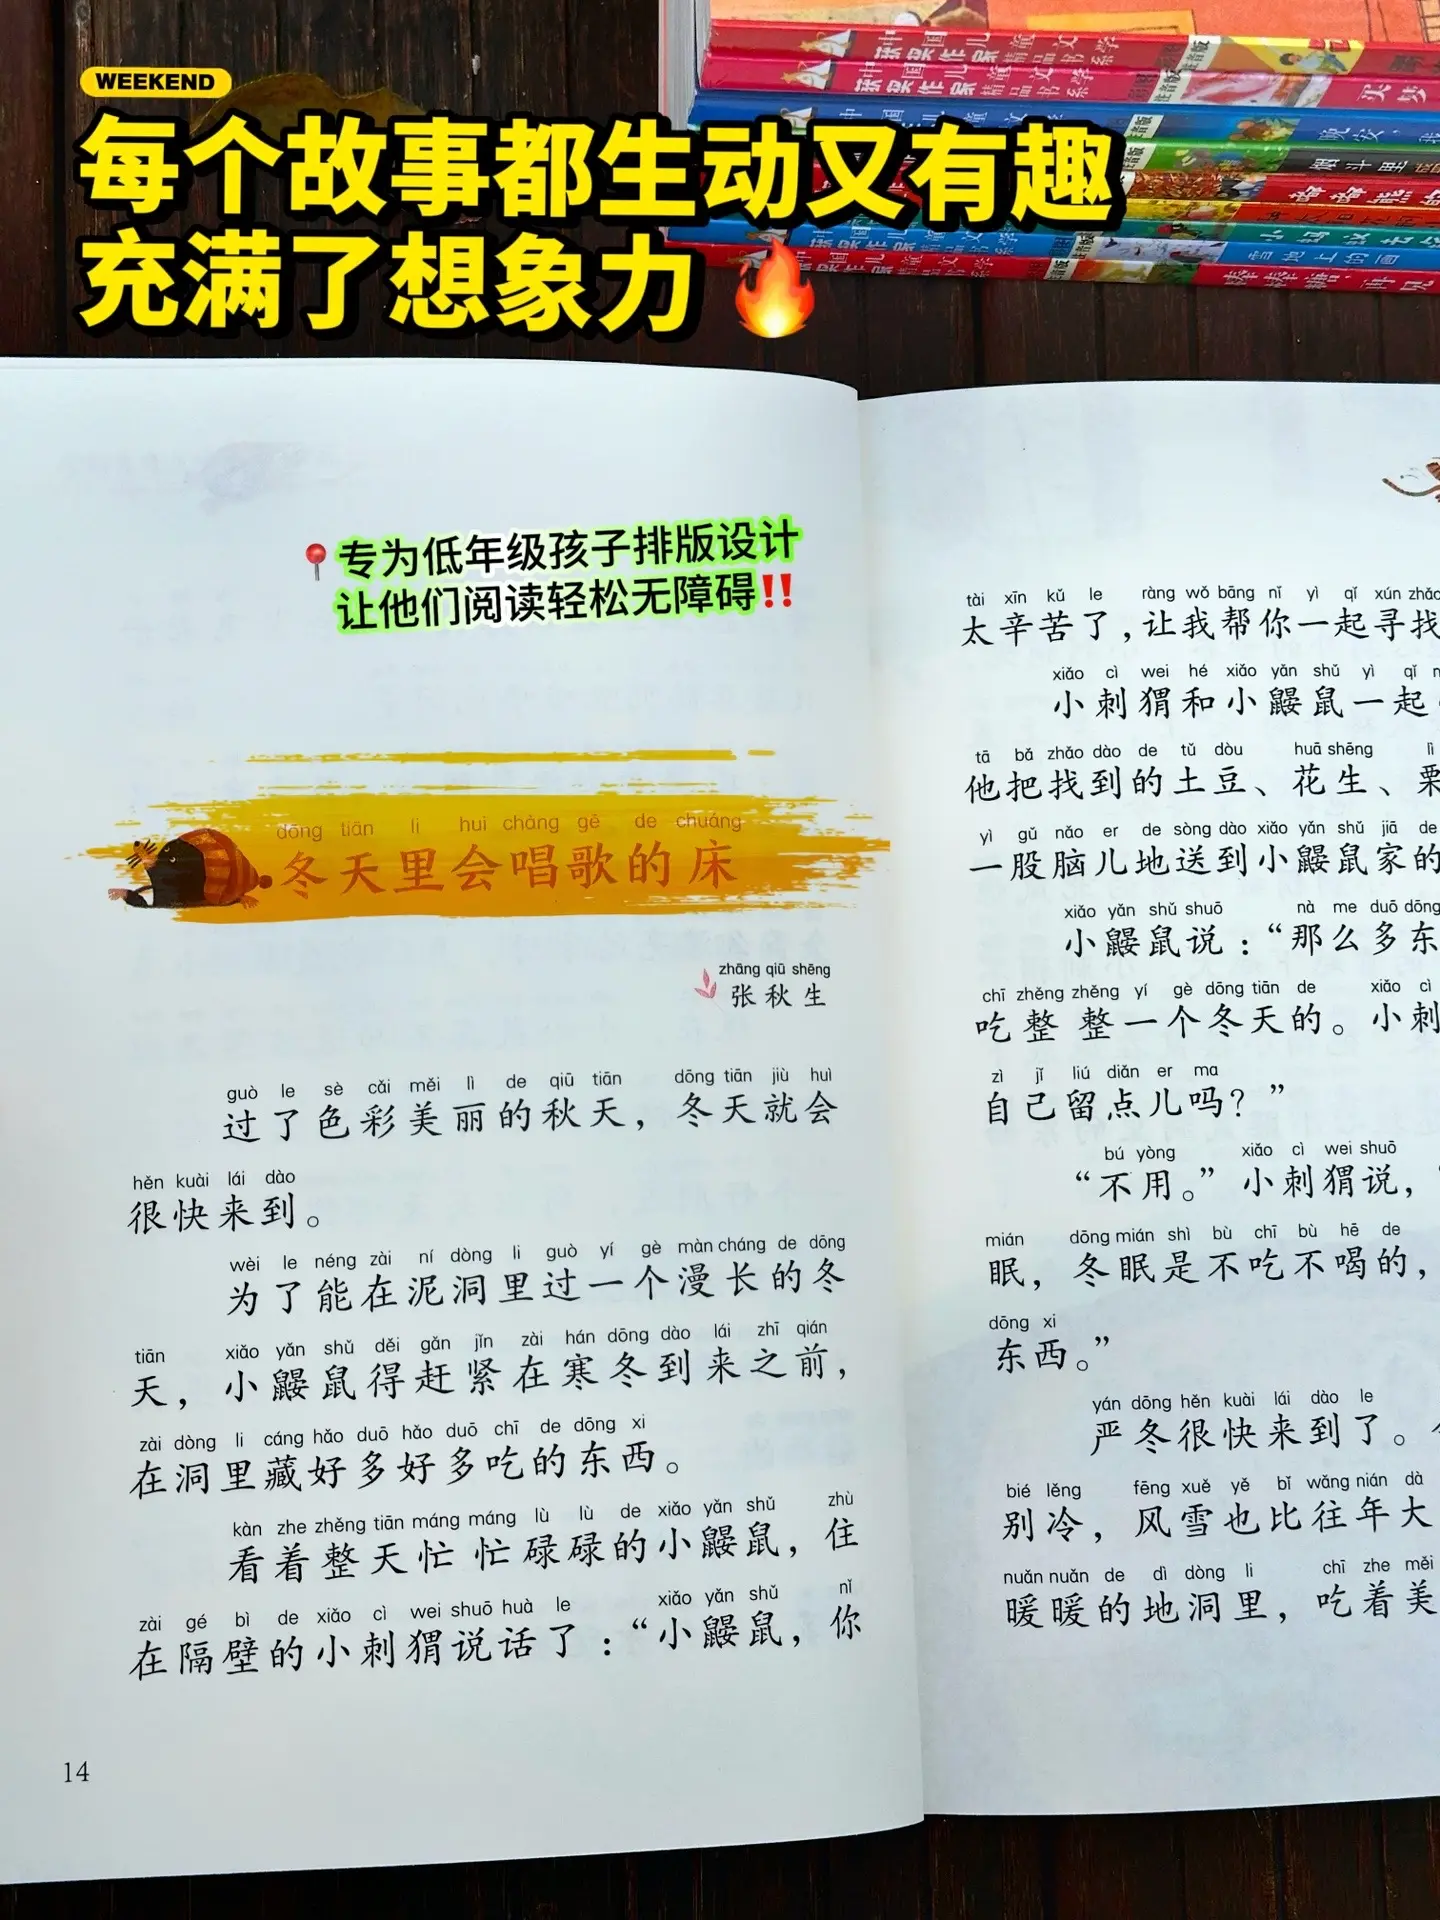 WEEKEND
每个故事都生动又有趣
充满了想象力
📍专为低年级孩子排版设计
让他们阅读轻松无障碍‼️
dōng tiān li huì chàng gē de chuáng
冬天里会唱歌的床
zhāng qiū shēng
张秋生
guò le sè cǎi měi lì de qiū tiān dōng tiān jiù huì
过了色彩美丽的秋天，冬天就会
hěn kuài lái dào
很快来到。
wèi le néng zài ní dòng li guò yí gè màn cháng de dōng
为了能在泥洞里过一个漫长的冬
tiān xiǎo yǎn shǔ děi gǎn jǐn zài hán dōng dào lái zhī qián
天，小鼹鼠得赶紧在寒冬到来之前，
zài dòng li cáng hǎo duō hǎo duō chī de dōng xi
在洞里藏好多好多吃的东西。
kàn zhe zhěng tiān máng máng lù lù de xiǎo yǎn shǔ zhù
看着整天忙忙碌碌的小鼹鼠，住
zài gé bì de xiǎo cì wei shuō huà le xiǎo yǎn shǔ nǐ
在隔壁的小刺猬说话了：“小鼹鼠，你
14
tài xīn kǔ le ràng wǒ bāng nǐ yì qǐ xún zhǎo
太辛苦了，让我帮你一起寻找
xiǎo cì wei hé xiǎo yǎn shǔ yì qǐ
小刺猬和小鼹鼠一起
tā bǎ zhǎo dào de tǔ dòu huā shēng lì
他把找到的土豆、花生、栗
yì gǔ nǎo er de sòng dào xiǎo yǎn shǔ jiā de
一股脑儿地送到小鼹鼠家的
xiǎo yǎn shǔ shuō nà me duō dōng
小鼹鼠说：“那么多东
chī zhěng zhěng yí gè dōng tiān de xiǎo cì
吃整整一个冬天的。小刺
zì jǐ liú diǎn er ma
自己留点儿吗？”
bú yòng xiǎo cì wei shuō
“不用。”小刺猬说，“
mián dōng mián shì bù chī bù hē de
眠，冬眠是不吃不喝的，
dōng xi
东西。”
yán dōng hěn kuài lái dào le
严冬很快来到了。
bié lěng fēng xuě yě bǐ wǎng nián dà
别冷，风雪也比往年大
nuǎn nuǎn de dì dòng li chī zhe měi
暖暖的地洞里，吃着美